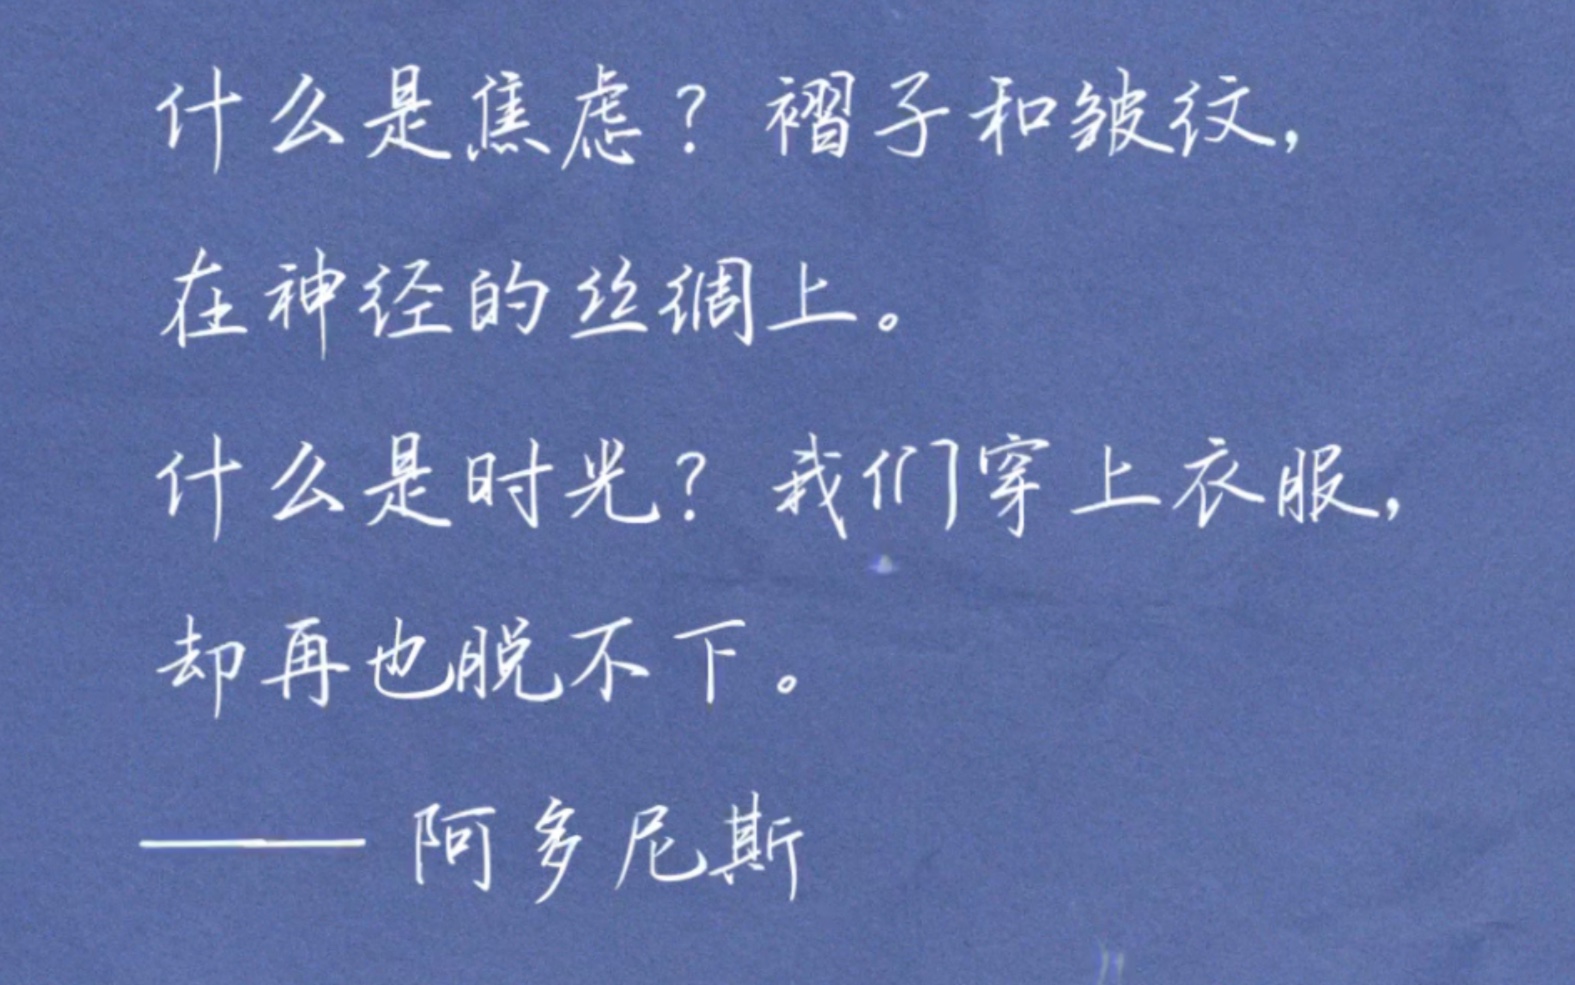 什么是焦虑？褶子和皱纹，
在神经的丝绸上。
什么是时光？我们穿上衣服，
却再也脱不下。
—— 阿多尼斯